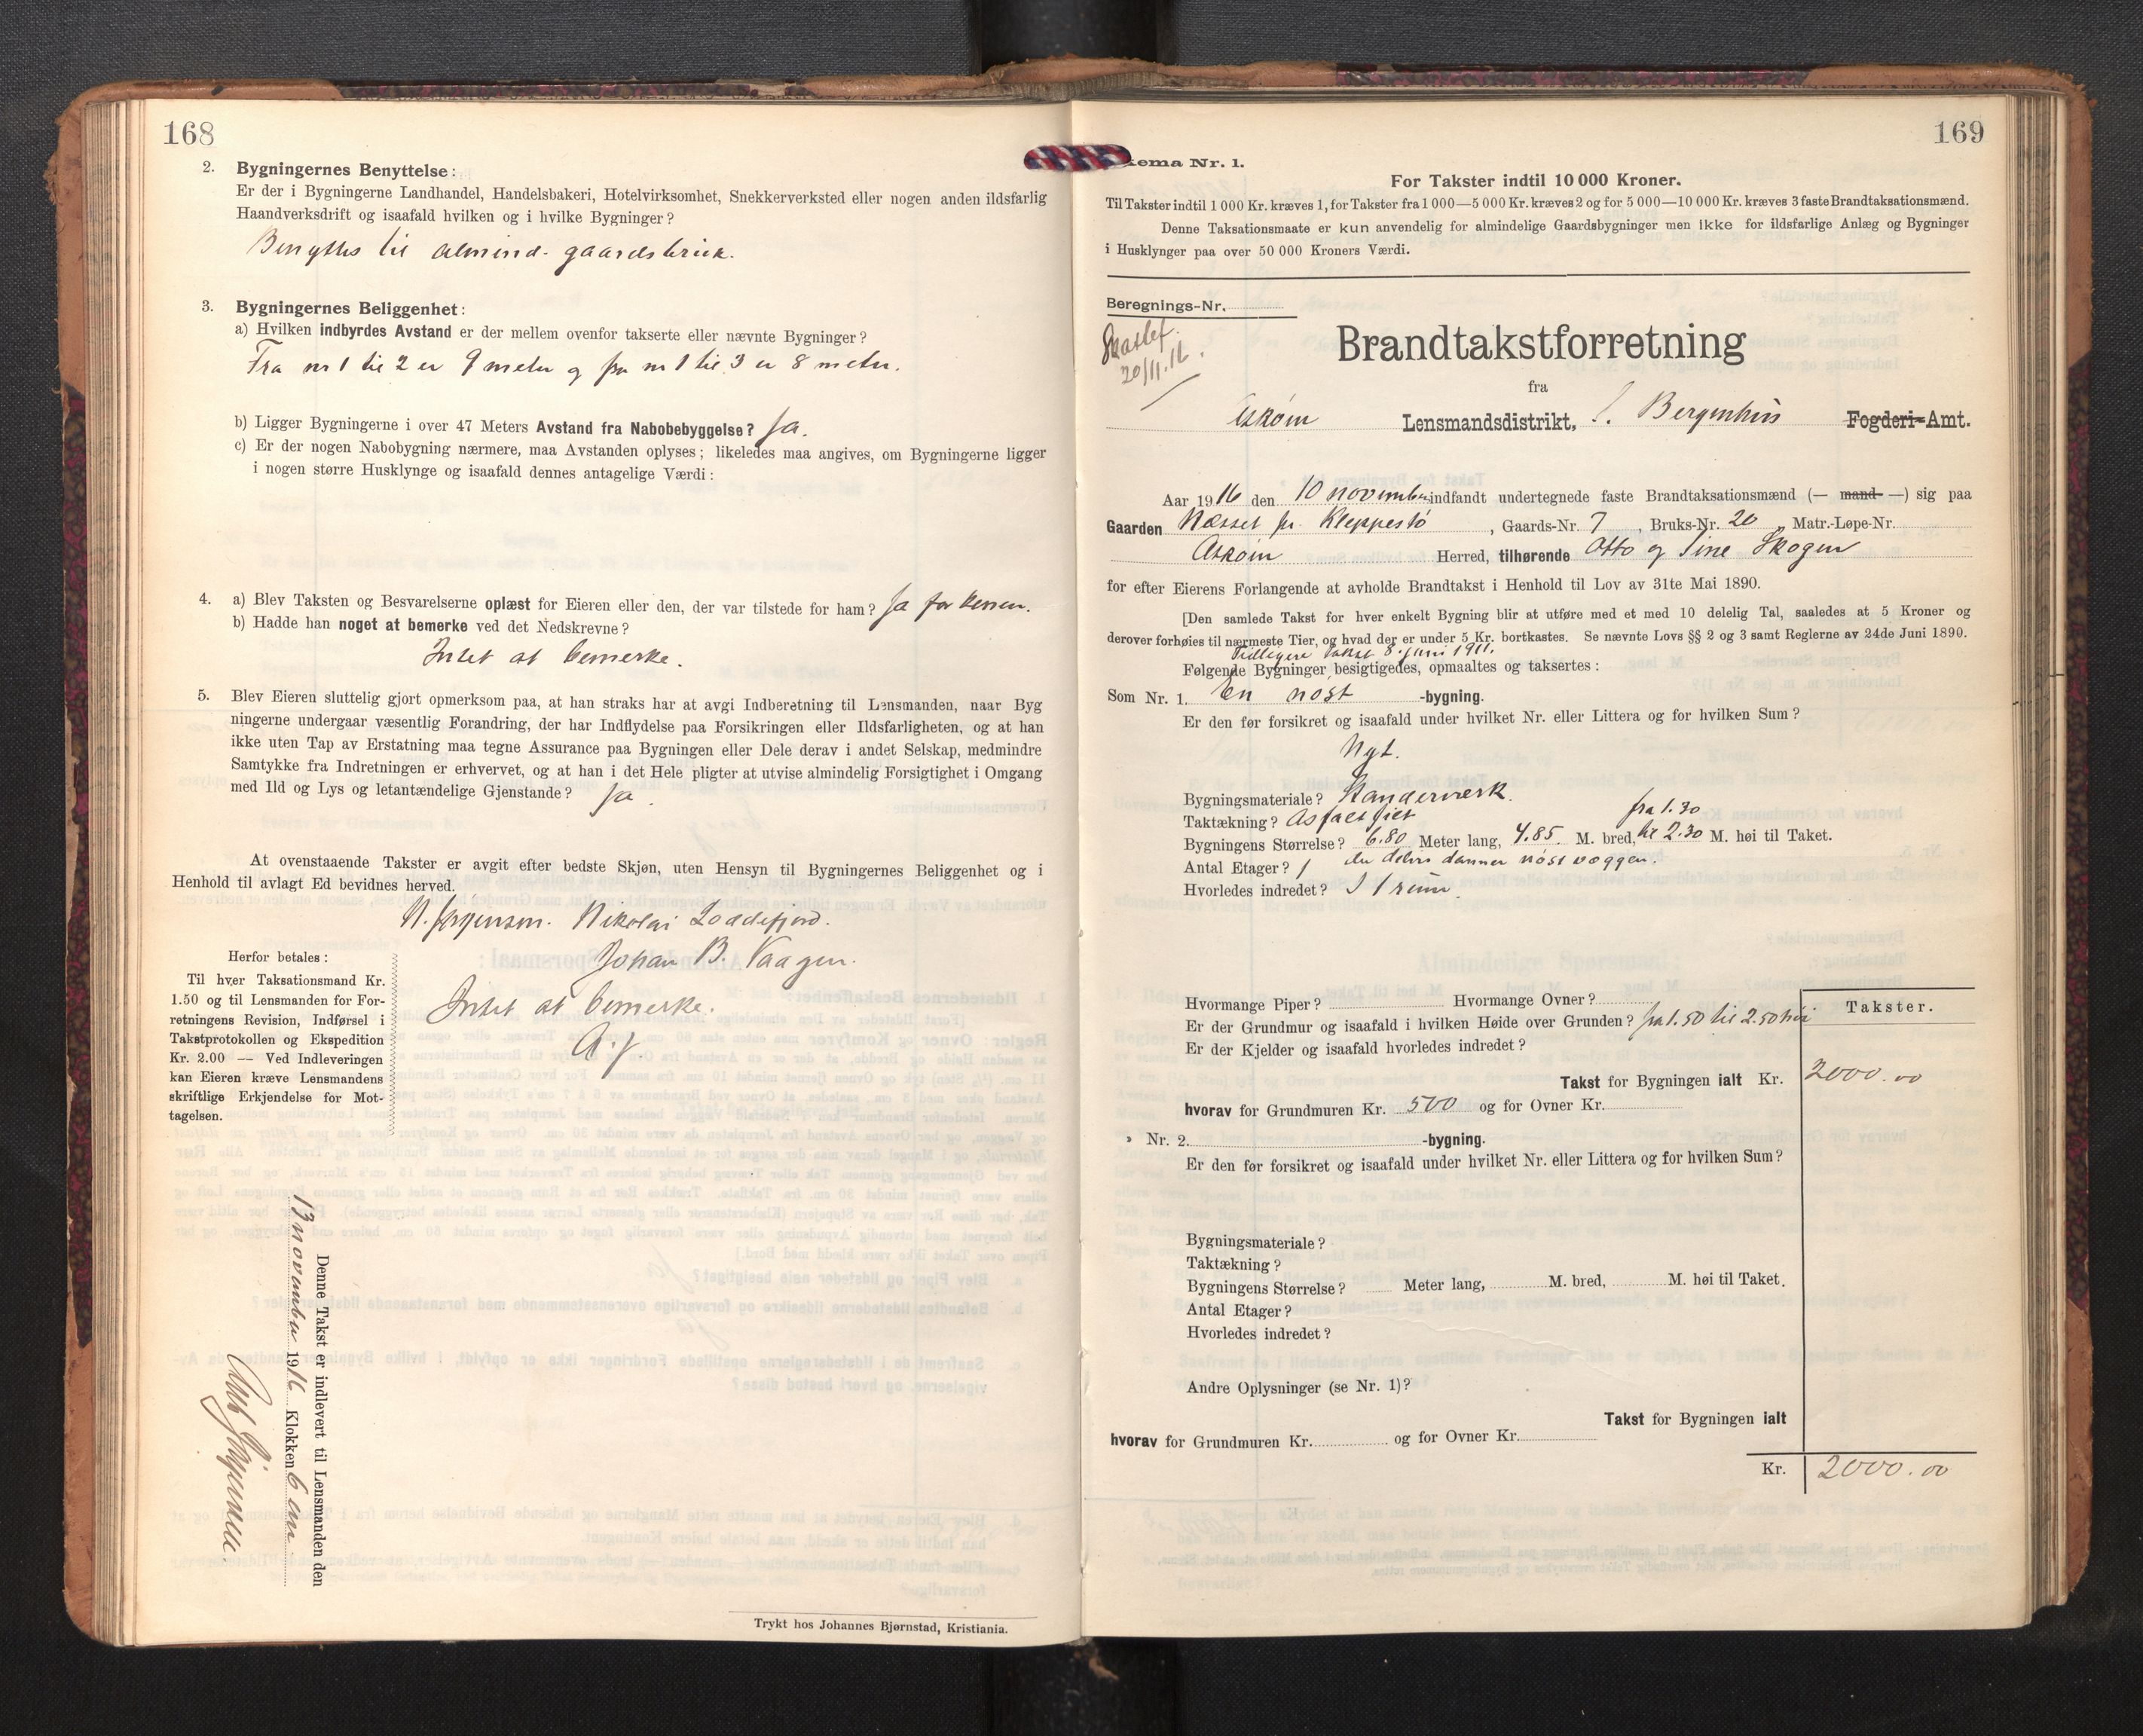 168
2. Bygningernes Benyttelse:
Er der i Bygningerne Landhandel, Handelsbakeri, Hotelvirksomhet, Snekkerverksted eller nogen anden ildsfarlig
Haandverksdrift og isaafald hvilken og i hvilke Bygninger?
Benyttes til almind. gaardsbruk.
3. Bygningernes Beliggenhet:
a) Hvilken indbyrdes Avstand er der mellem ovenfor takserte eller nævnte Bygninger?
Fra nr 1 til 2 er 9 meter og fra nr 1 til 3 er 8 meter.
b) Ligger Bygningerne i over 47 Meters Avstand fra Nabobebyggelse? Ja.
c) Er der nogen Nabobygning nærmere, maa Avstanden oplyses; likeledes maa angives, om Bygningerne ligger
i nogen større Husklynge og isaafald dennes antagelige Værdi:
4. a) Blev Taksten og Besvarelserne oplæst for Eieren eller den, der var tilstede for ham? Ja for
b) Hadde han noget at bemerke ved det Nedskrevne?
Intet at bemerke.
5. Blev Eieren sluttelig gjort opmerksom paa, at han straks har at avgi Indberetning til Lensmanden, naar Byg
ningerne undergaar væsentlig Forandring, der har Indflydelse paa Forsikringen eller Ildsfarligheten, og at han
ikke uten Tap av Erstatning maa tegne Assurance paa Bygningen eller Dele derav i andet Selskap, medmindre
Samtykke fra Indretningen er erhvervet, og at han i det Hele pligter at utvise almindelig Forsigtighet i Omgang
med Ild og Lys og letantændelige Gjenstande? Ja.
At ovenstaaende Takster er avgit efter bedste Skjøn, uten Hensyn til Bygningernes Beliggenhet og i
Henhold til avlagt Ed bevidnes herved.
N. Jørgensen. Nikolai Loddefjord.
Johan B. Vaagen.
Intet at bemerke.
A. J.
Herfor betales:
Til hver Taksationsmand Kr.
1.50 og til Lensmanden for For-
retningens Revision, Indførsel i
Takstprotokollen og Ekspedition
Kr. 2.00 — Ved Indleveringen
kan Eieren kræve Lensmandens
skriftlige Erkjendelse for Mot-
tagelsen.
Denne Takst er indlevert til Lensmanden den
13 november 1916 Klokken 6 em.
Trykt hos Johannes Bjørnstad, Kristiania.
169
kema Nr. 1.
For Takster indtil 10 000 Kroner.
Til Takster indtil 1 000 Kr. kræves 1, for Takster fra 1 000—5 000 Kr. kræves 2 og for 5 000—10 000 Kr. kræves 3 faste Brandtaksationsmænd.
Denne Taksationsmaate er kun anvendelig for almindelige Gaardsbygninger men ikke for ildsfarlige Anlæg og Bygninger
i Husklynger paa over 50 000 Kroners Værdi.
Beregnings-Nr.
20/11.16.
Brandtakstforretning
fra
Askøin Lensmandsdistrikt, S. Bergenhus Fogderi-Amt.
Aar 1916 den 10 november indfandt undertegnede faste Brandtaksationsmænd (— mand —) sig paa
Gaarden Næsset pr. Kleppestø, Gaards-Nr. 7, Bruks-Nr. 20 Matr.-Løpe-Nr.
Askøin Herred, tilhørende Otto og Sine Skogen
for efter Eierens Forlangende at avholde Brandtakst i Henhold til Lov av 31te Mai 1890.
[Den samlede Takst for hver enkelt Bygning blir at utføre med et med 10 delelig Tal, saaledes at 5 Kroner og
derover forhøies til nærmeste Tier, og hvad der er under 5 Kr. bortkastes. Se nævnte Lovs §§ 2 og 3 samt Reglerne av 24de Juni 1890.
Tidligere takst 8. juni 1911.
Følgende Bygninger besigtigedes, opmaaltes og taksertes:
Som Nr. 1. En nøst -bygning.
Er den før forsikret og isaafald under hvilket Nr. eller Littera og for hvilken Sum?
Nyt.
Bygningsmateriale? Standerverk.
Taktækning? Asfaltfilt
fra 1.30
Bygningens Størrelse? 6.80 Meter lang, 4.85 M. bred, til 2.30 M. høi til Taket.
Antal Etager? 1 der delvis danner nøst væggen.
Hvorledes indredet? I 1 rum
Hvormange Piper? Hvormange Ovner?
Takster.
Er der Grundmur og isaafald i hvilken Høide over Grunden? fra 1.50 til 2.50 høi
Er der Kjelder og isaafald hvorledes indredet?
Takst for Bygningen ialt Kr. 2000.00
hvorav for Grundmuren Kr. 500 og for Ovner Kr.
» Nr. 2. -bygning.
Er den før forsikret og isaafald under hvilket Nr. eller Littera og for hvilken Sum?
Bygningsmateriale?
Taktækning?
Bygningens Størrelse? Meter lang, M. bred, M. høi til Taket.
Antal Etager?
Hvorledes indredet?
Andre Oplysninger (se Nr. 1)?
Takst for Bygningen ialt
hvorav for Grundmuren Kr. og for Ovner Kr.
Kr. 2000.00